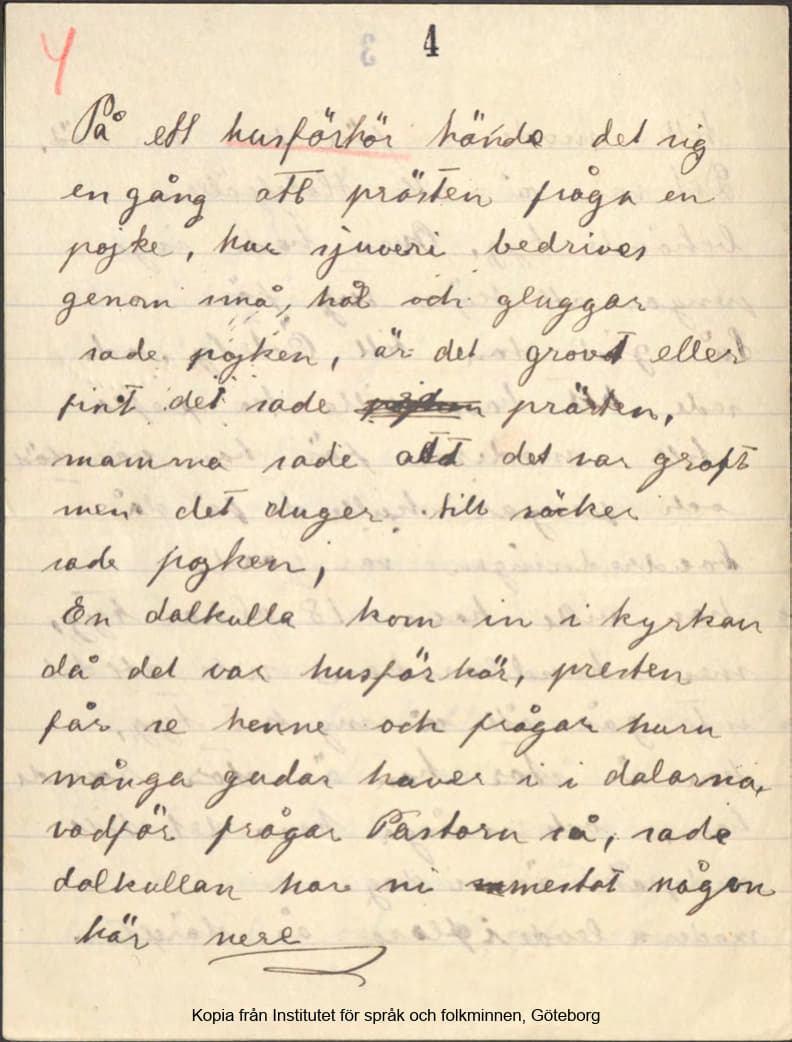 4
4
På ett husförhör hände det sig
en gång att prästen fråga en
pojke, hur tjuveri bedrives
genom små, hål och gluggar
sade pojken, är det grovt eller
fint det sade prästen,
mamma sade att det var groft
men det duger till säcker
sade pojken,
En dalkulla kom in i kyrkan
då det var husförhör, presten
får se henne och frågar huru
många gudar haver i i dalarna,
vadför frågar Pastorn så, sade
dalkullan har ni mestat någon
här nere
Kopia från Institutet för språk och folkminnen, Göteborg